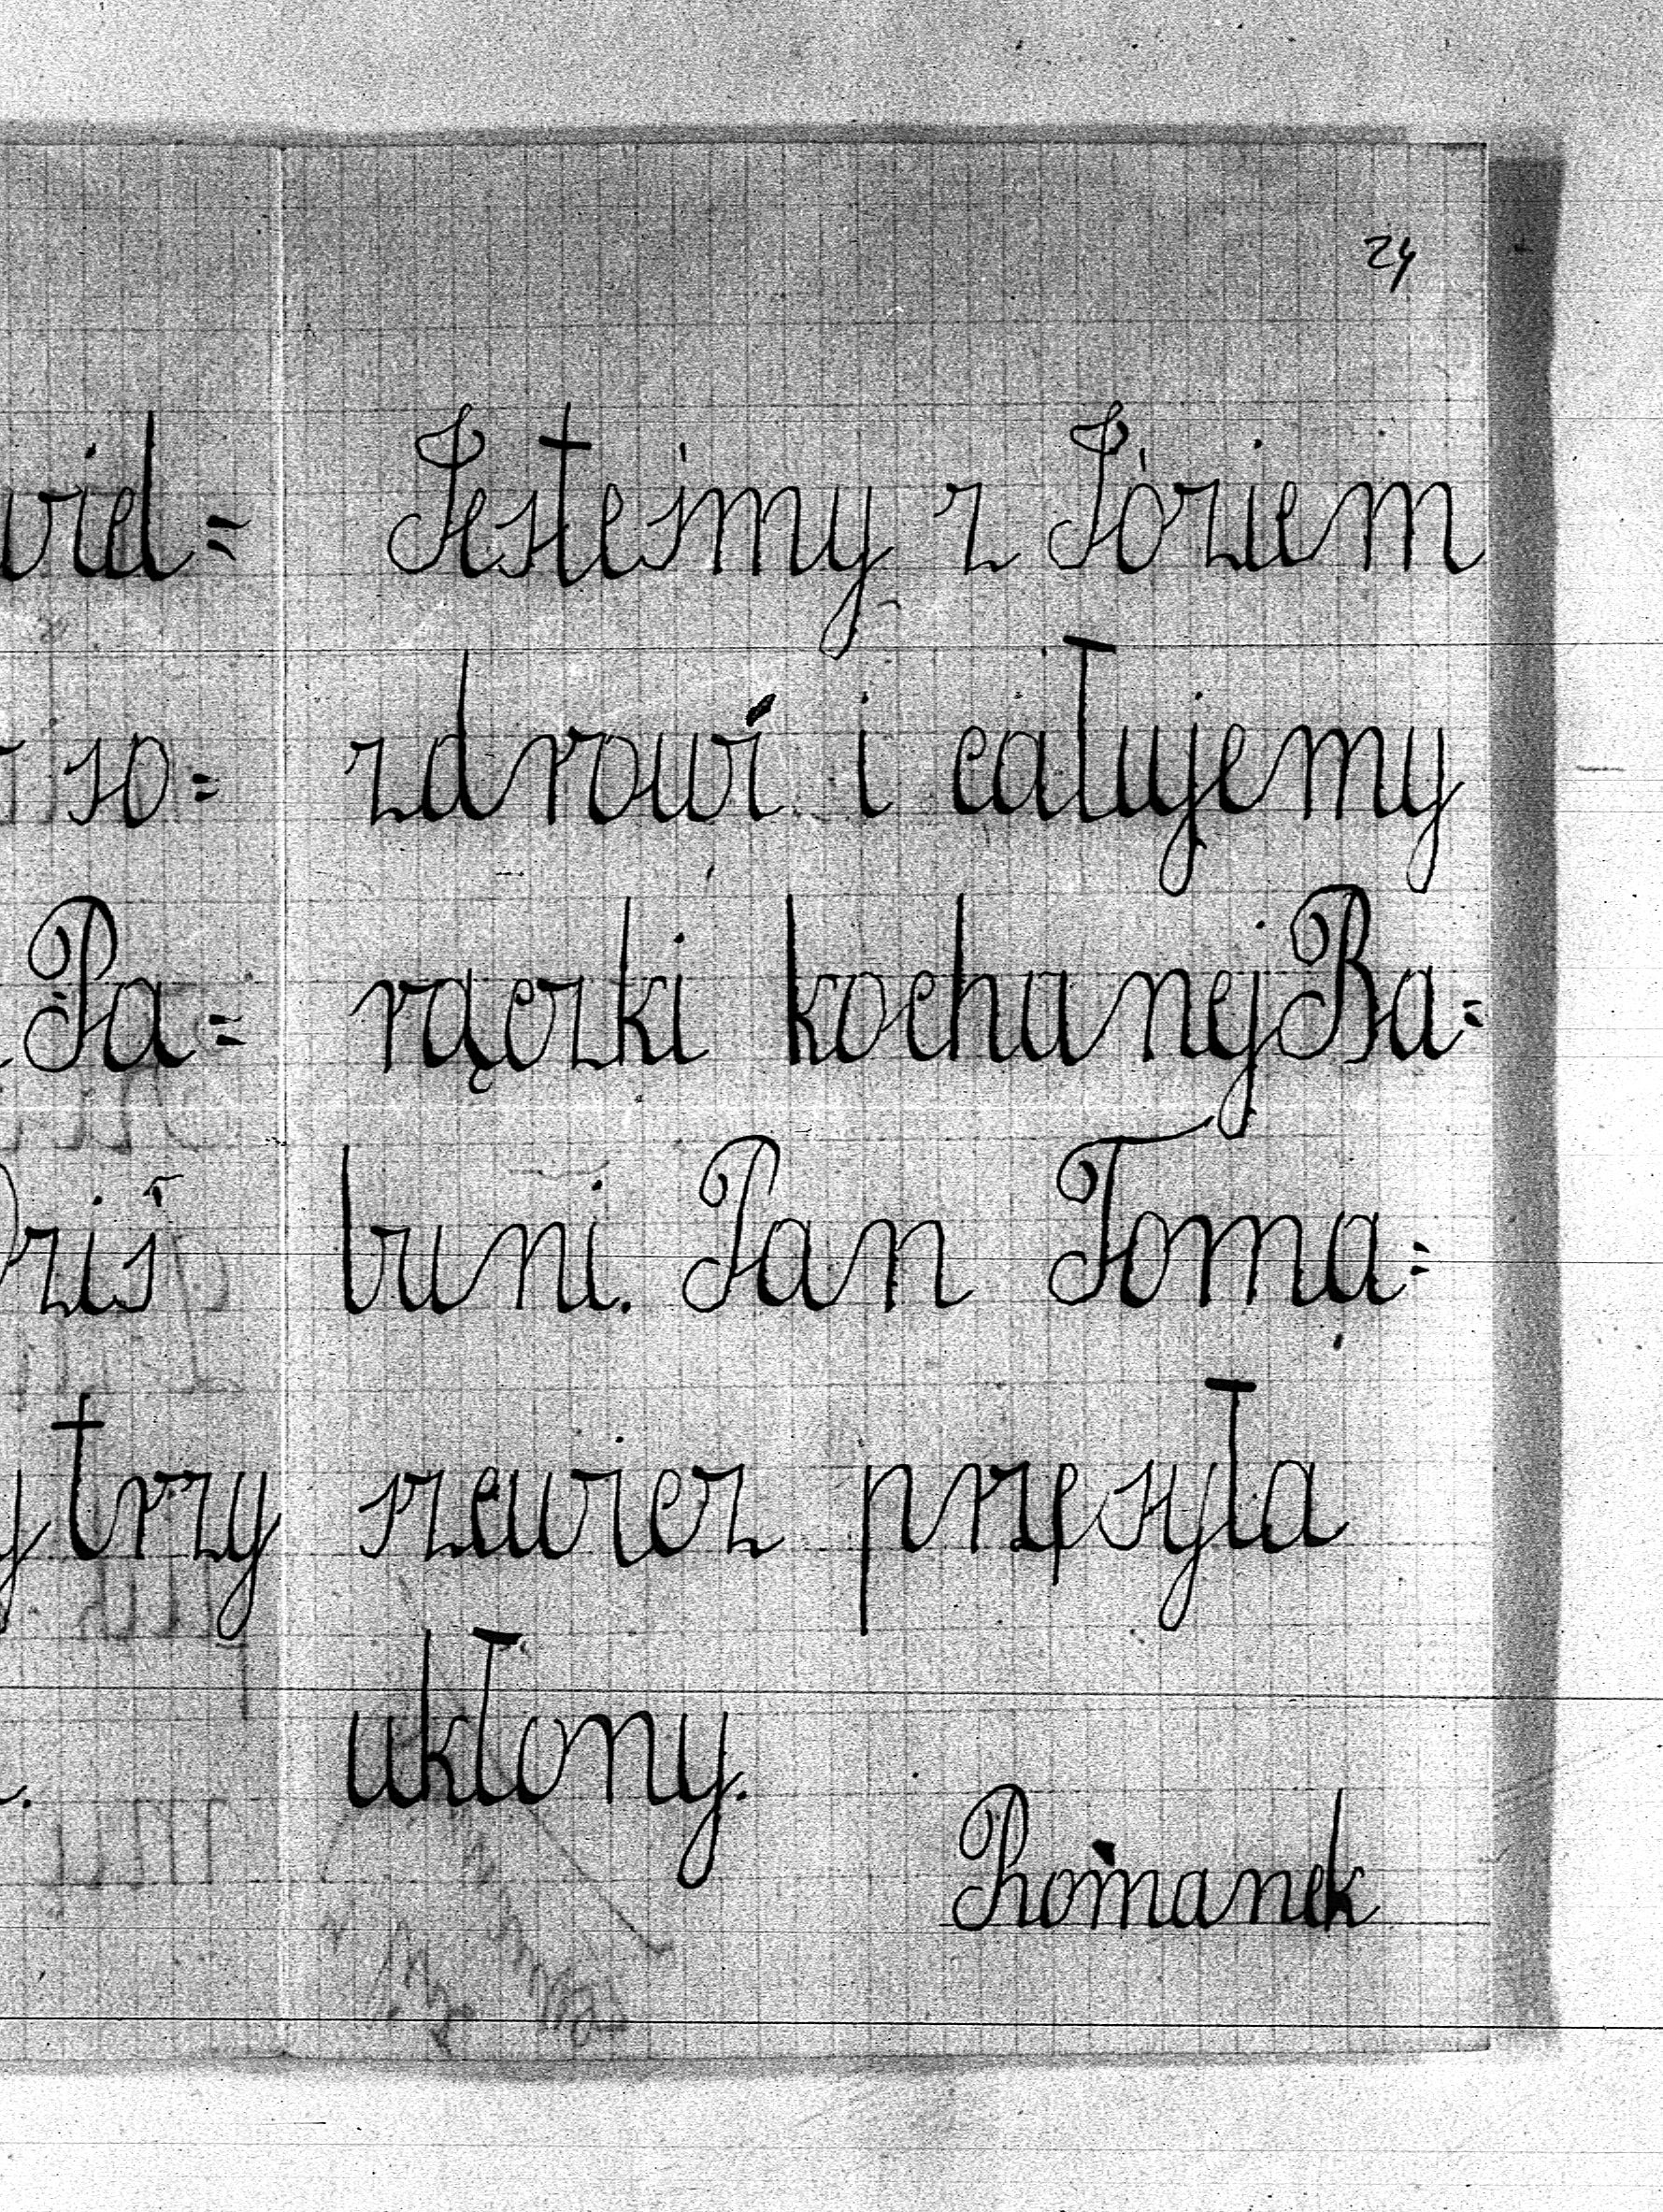 24
Jesteśmy z Józiem
zdrowi i całujemy
rączki kochanej Ba=
buni. Pan Toma=
szewicz przesyła
ukłony.
Romanek
wid=
so=
Pa=
Dziś
trzy